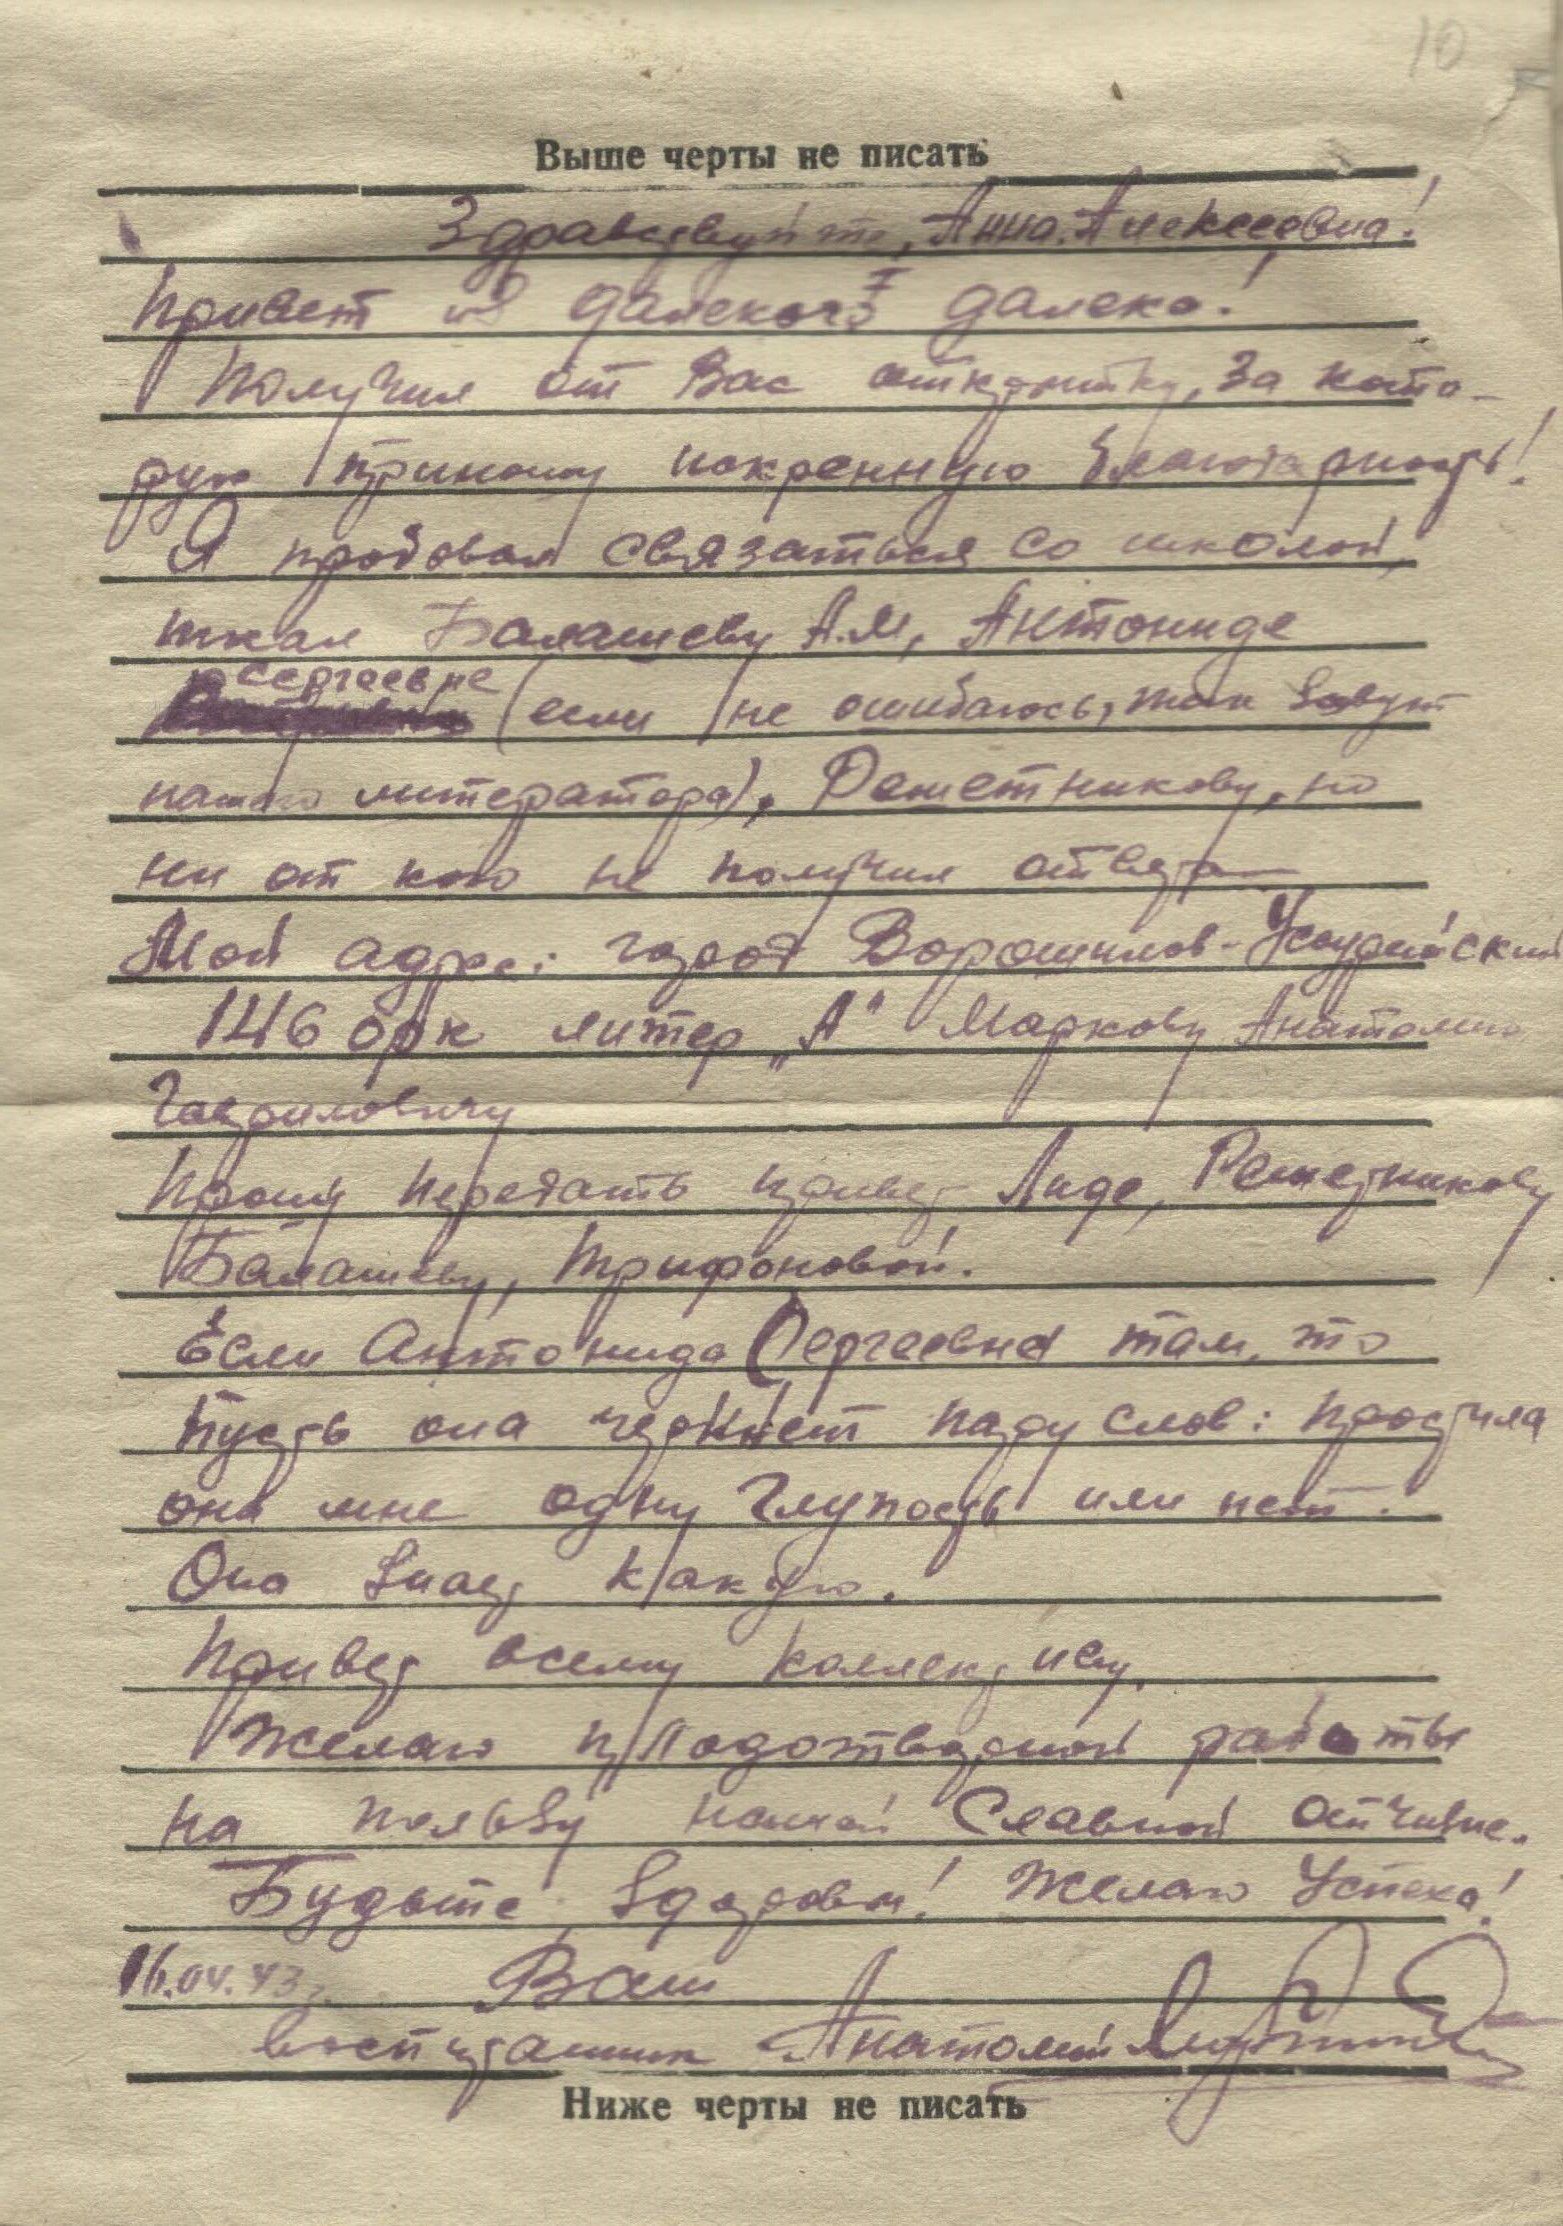 10
Выше черты не писать
Здравствуйте, Анна Алексеевна!
Привет из далекого далека!
Получил от Вас открытку, за кото-
рую приношу искреннюю благодарность!
Я пробовал связаться со школой,
писал Балашеву А.М, Антониде
Сергеевне (если не ошибаюсь, так зовут
нашего литератора), Решетникову, но
ни от кого не получил ответа
Мой адрес: город Ворошилов-Уссурийский
146 орк литер „А" Маркову Анатолию
Гавриловичу
Прошу передать привет Лиде, Решетникову
Балашеву, Трифоновой.
Если Антонида Сергеевна там, то
пусть она черкнет пару слов: простила
она мне одну глупость или нет.
Она знает какую.
Привет всему коллективу.
Желаю плодотворной работы
на пользу нашей Славной отчизне.
Будьте здоровы! Желаю Успеха!
16.04.43 г. Ваш
воспитанник Анатолий
Ниже черты не писать